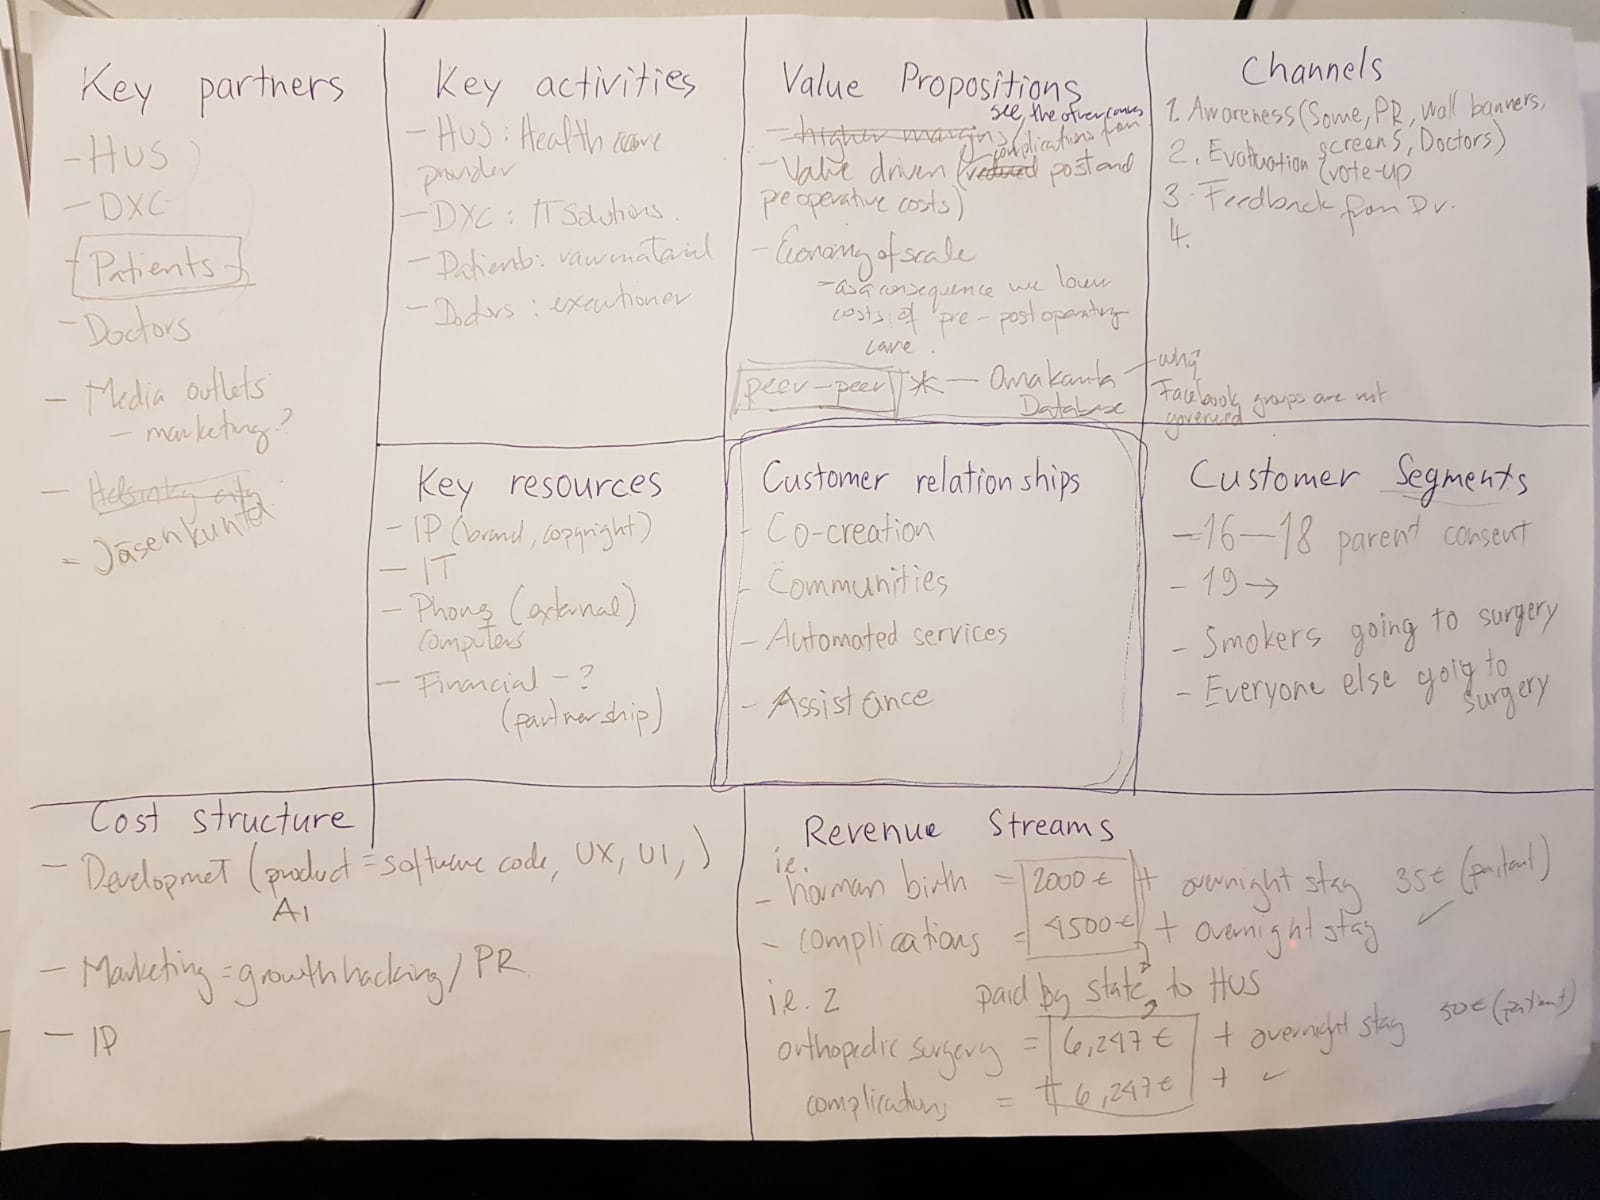 Key partners
- HUS
- DXC
- Patients
- Doctors
- Media outlets
- marketing?
- Helsinky city
= Jäsenkunta
Key activities
- HUS : Health care
provider
- DXC : IT Solutions.
- Patients : raw material
- Doctors : executioner
Value Propositions
see, the other canvas
- higher margins /
complications from
- Value driven (reduced post and
pre operative costs)
- Economy of scale
- as a consequence we lower
costs of pre - post operating
care.
peer-peer * - Omakanta
Database
Channels
1. Awareness (Some, PR, wall banners,
screens, Doctors)
2. Evaluation (vote-up
3. Feedback from Dr.
4.
- why?
Facebook groups are not
governed
Key resources
- IP (brand, copyright)
- IT
- Phones (external)
computers
- Financial - ?
(partnership)
Customer relationships
- Co-creation
- Communities
- Automated services
- Assistance
Customer Segments
- 16 - 18 parent consent
- 19 →
- Smokers going to surgery
- Everyone else goig to
surgery
Cost structure
- Developmet (product = software code, UX, UI, )
AI
- Marketing = growthhacking / PR
- IP
Revenue Streams
ie.
- horman birth = 2000 € + overnight stay 35€ (paitent)
- complications = 4500€ + overnight stay ✓
i.e. 2 paid by state to HUS
orthopedic surgery = 6,247 € + overnight stay 50€ (paitent)
complications = + 6,247€ + ✓